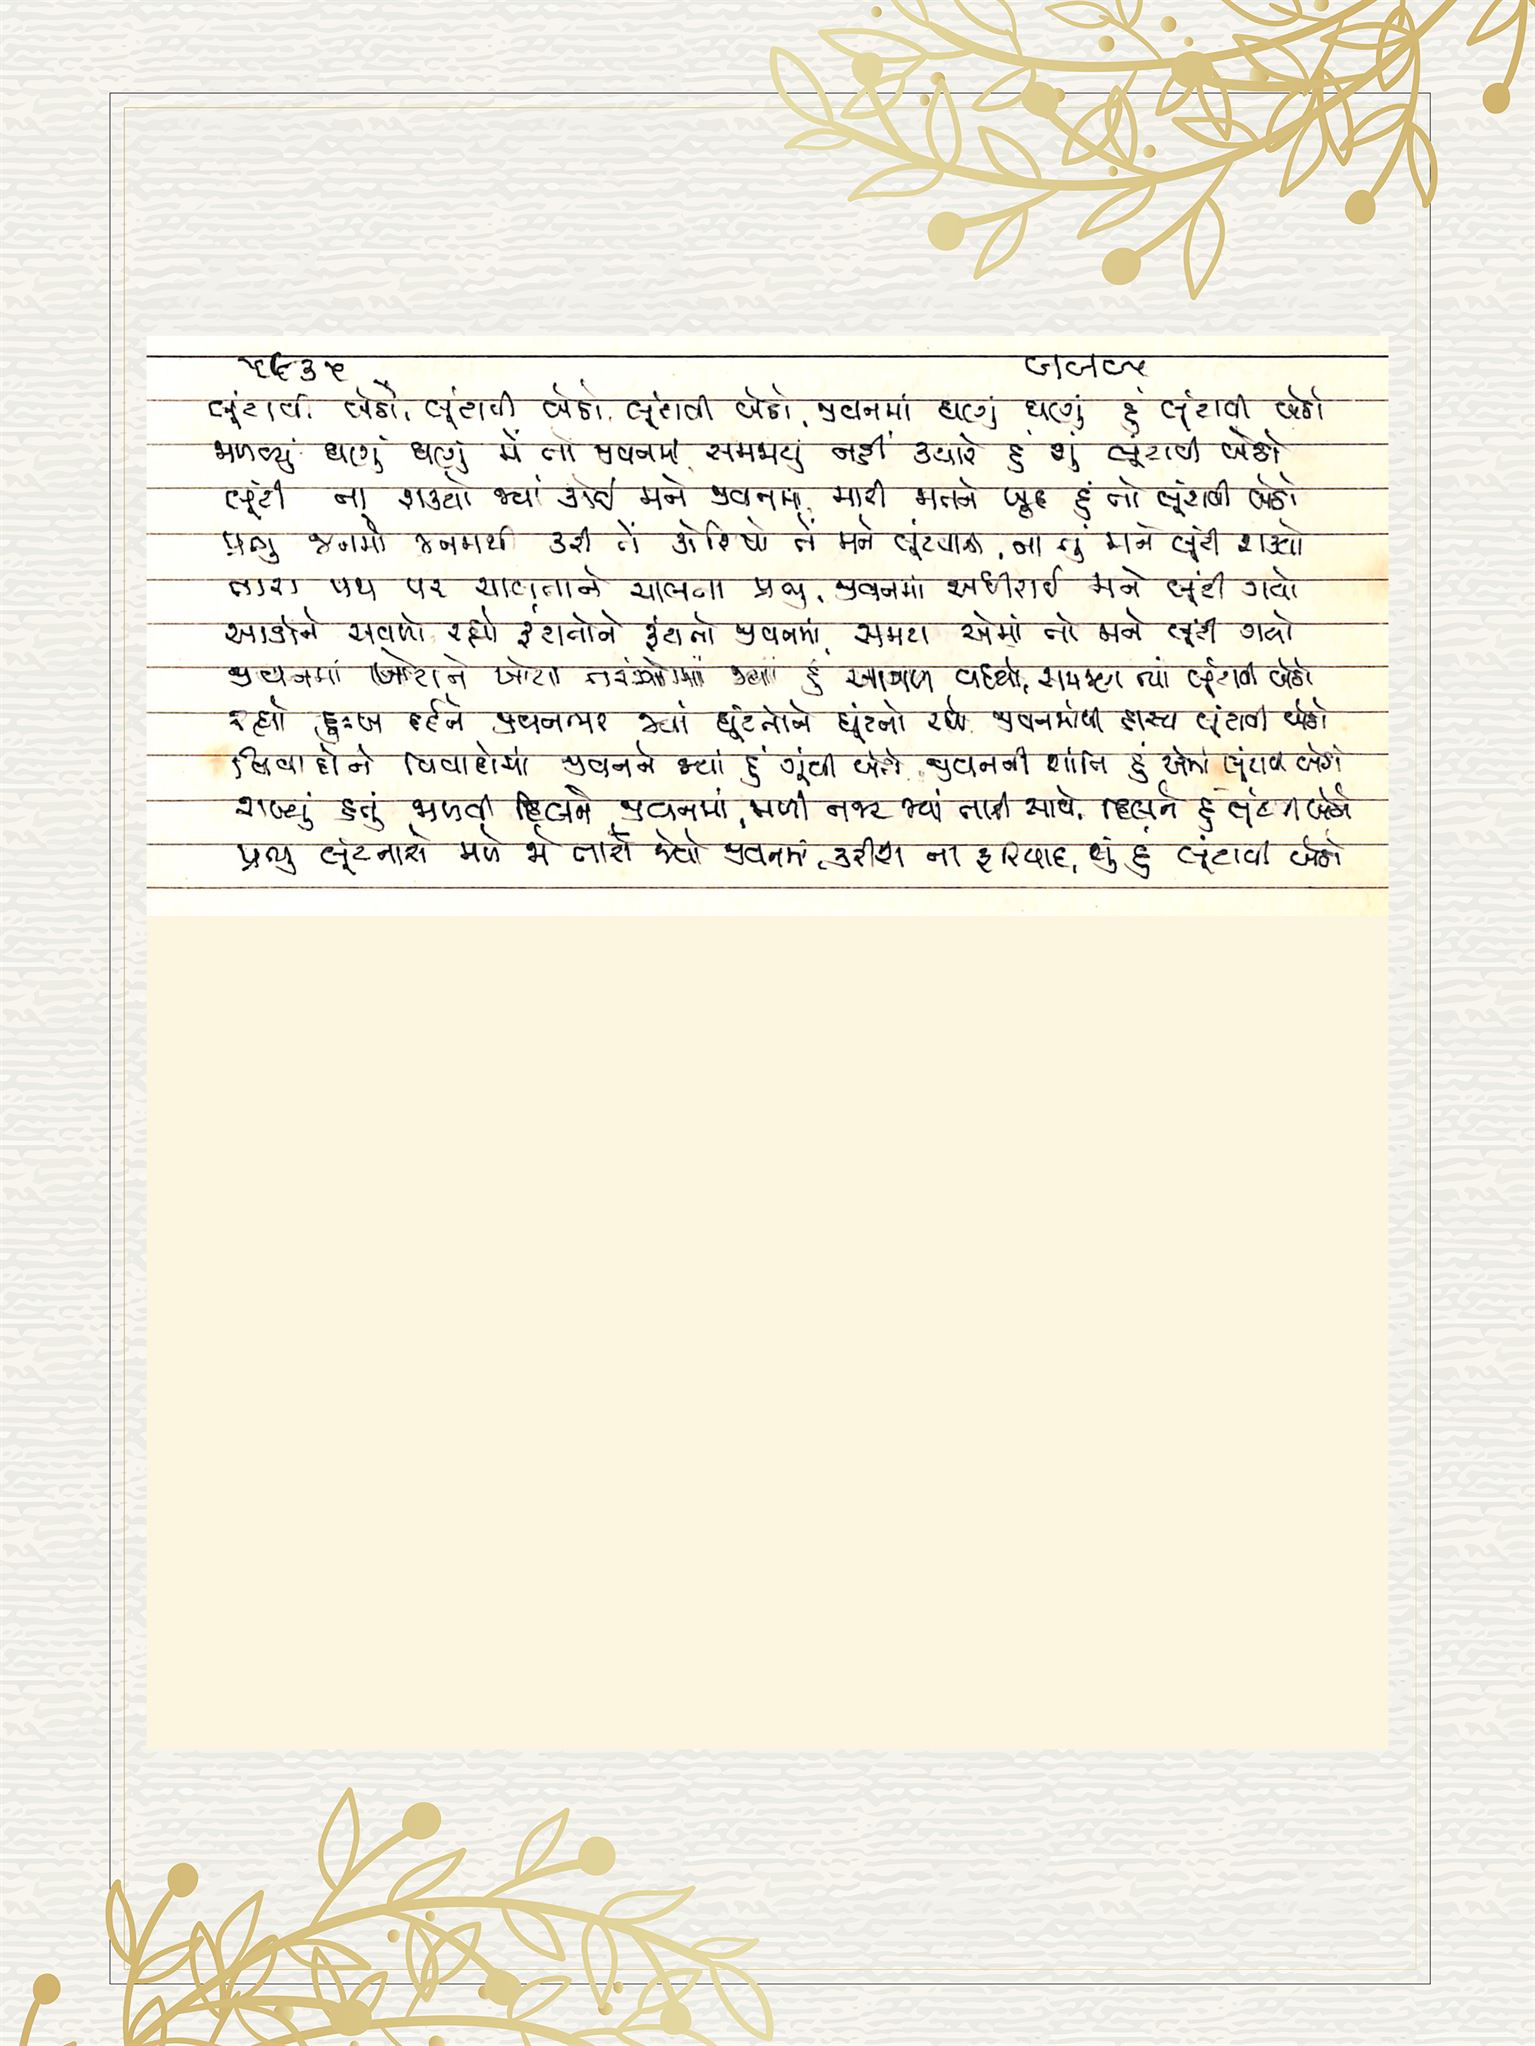 ૫૬૩૫
લૂંટાવી બેઠો, લૂંટાવી બેઠો, લૂંટાવી બેઠો, જીવનમાં ઘણું ઘણું હું લૂંટાવી બેઠો
મળવ્યું ઘણું ઘણું મેં તો જીવનમાં, સમજાયું નહીં ક્યારે હું શું લૂંટાવી બેઠો
લૂંટી ના શક્યો જ્યાં કોઈ મને જીવનમાં, મારી મતને ખુદ હું તો લૂંટાવી બેઠો
પ્રભુ જનમો જનમથી કરી તેં કોશિષો તેં મને લૂંટવાની, ના તું મને લૂંટી શક્યો
તારા પથ પર ચાલતાને ચાલતા પ્રભુ, જીવનમાં અધીરાઈ મને લૂંટી ગયો
સવળો રહ્યો ફંટાતોને ફંટાતો જીવનમાં, સમય એમાં તો મને લૂંટી ગયો
જીવનમાં ખોટાને ખોટા તરંગોમાં જ્યાં હું આગળ વધ્યો, ત્યાં લૂંટાવી બેઠો
રહ્યો દુઃખ દર્દને જીવનભર જ્યાં ઘૂંટતોને ઘૂંટતો રહ્યો જીવનમાંથી હાસ્ય લૂંટાવી બેઠો
વિવાદોને વિવાદોમાં જીવનને જ્યાં હું ગૂંથી બેઠો, જીવનની શાંતિ હું એમાં લૂંટાવી બેઠો
રાખ્યું હતું જાળવી દિલને જીવનમાં, મળી નજર જ્યાં તારી સાથે, દિલને હું લૂંટાવી બેઠો
પ્રભુ લૂંટનારો મળે જો તારા જેવો જીવનમાં, કરીશ ના ફરિયાદ, શું હું લૂંટાવી બેઠો